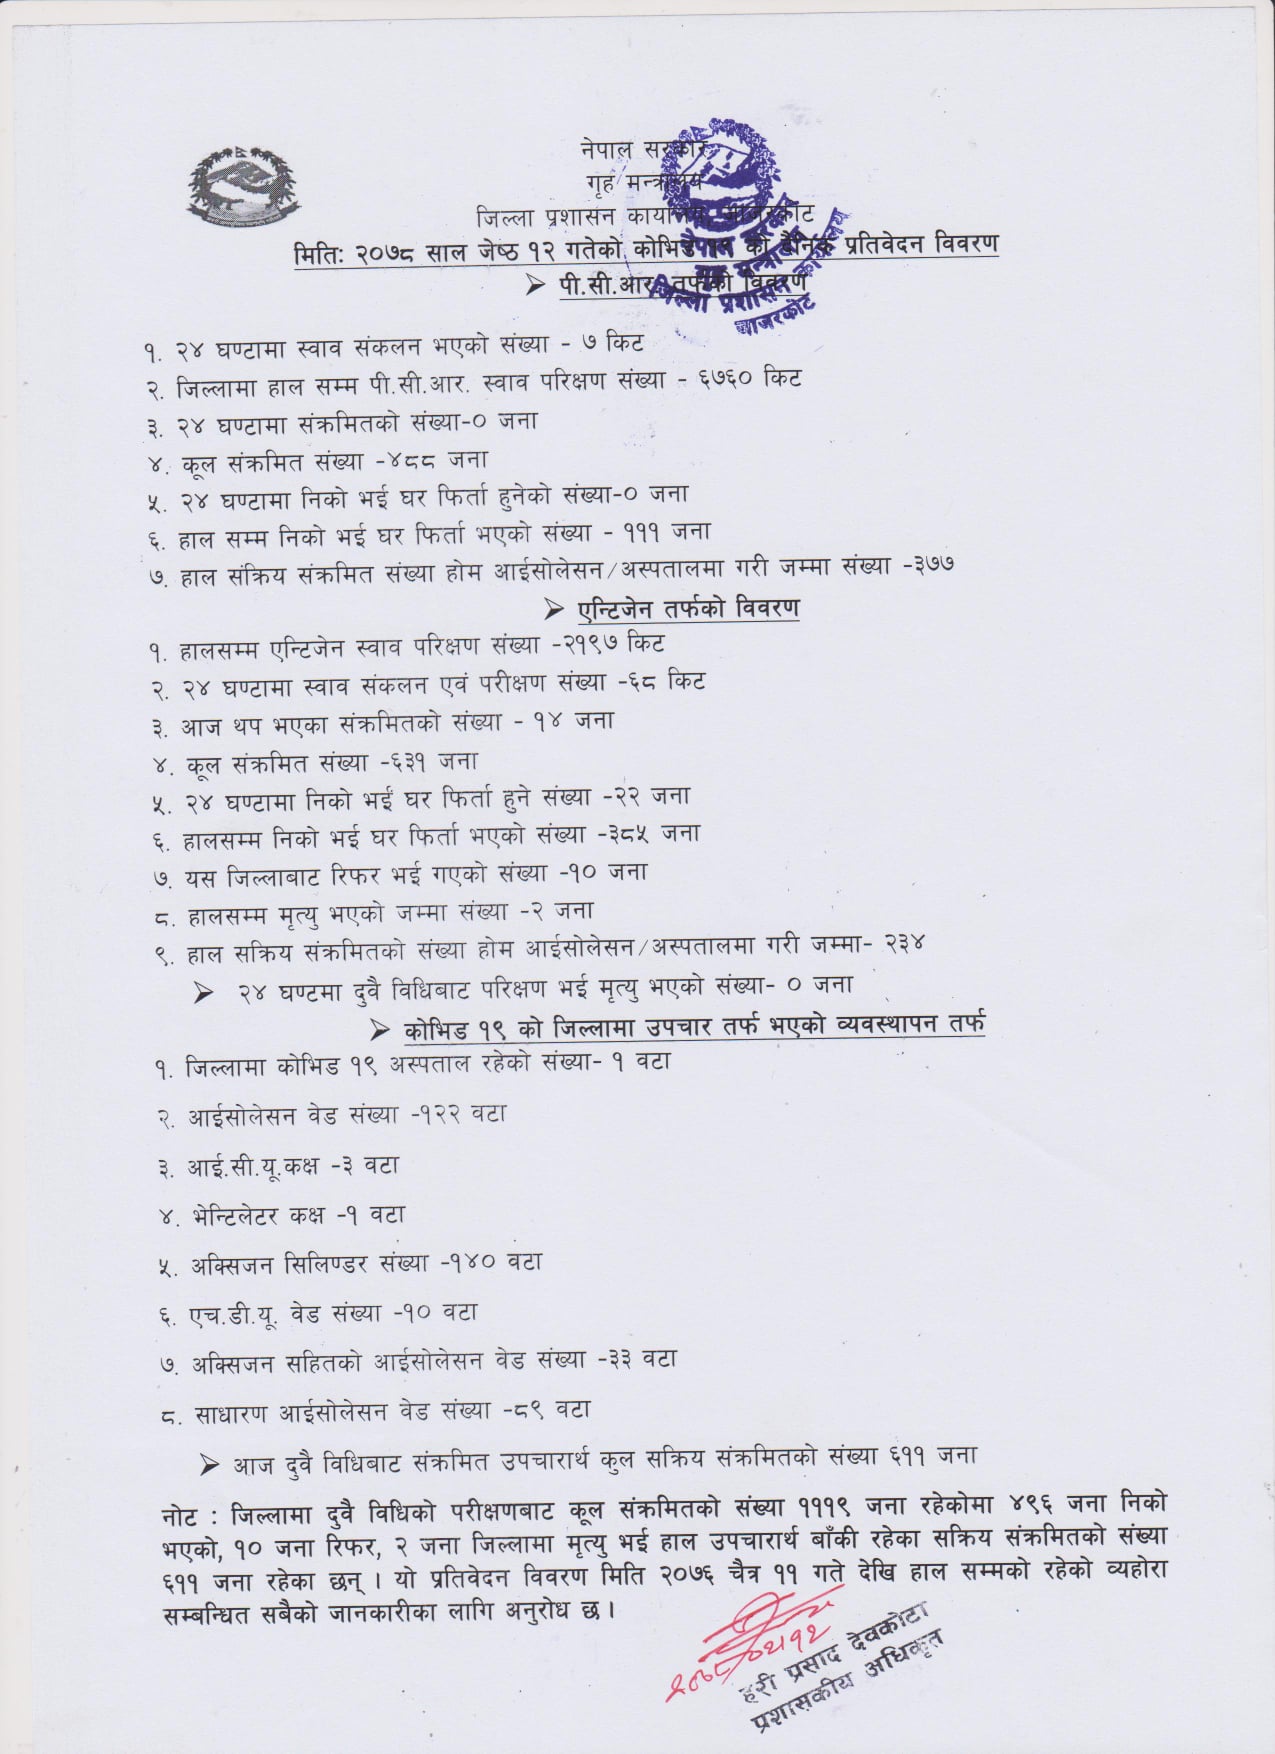 नेपाल सरकार
गृह मन्त्रालय
जिल्ला प्रशासन कार्यालय, जाजरकोट
मितिः २०७८ साल जेष्ठ १२ गतेको कोभिड १९ को दैनिक प्रतिवेदन विवरण
➢ पी.सी.आर. तर्फको विवरण
नेपाल सरकार
गृह मन्त्रालय
जिल्ला प्रशासन कार्यालय
जाजरकोट
१. २४ घण्टामा स्वाव संकलन भएको संख्या - ७ किट
२. जिल्लामा हाल सम्म पी.सी.आर. स्वाव परिक्षण संख्या - ६७६० किट
३. २४ घण्टामा संक्रमितको संख्या-० जना
४. कूल संक्रमित संख्या -४८८ जना
५. २४ घण्टामा निको भई घर फिर्ता हुनेको संख्या-० जना
६. हाल सम्म निको भई घर फिर्ता भएको संख्या - १११ जना
७. हाल संक्रिय संक्रमित संख्या होम आईसोलेसन/अस्पतालमा गरी जम्मा संख्या -३७७
➢ एन्टिजेन तर्फको विवरण
१. हालसम्म एन्टिजेन स्वाव परिक्षण संख्या -२१९७ किट
२. २४ घण्टामा स्वाव संकलन एवं परीक्षण संख्या -६८ किट
३. आज थप भएका संक्रमितको संख्या - १४ जना
४. कूल संक्रमित संख्या -६३१ जना
५. २४ घण्टामा निको भई घर फिर्ता हुने संख्या -२२ जना
६. हालसम्म निको भई घर फिर्ता भएको संख्या -३८५ जना
७. यस जिल्लाबाट रिफर भई गएको संख्या -१० जना
८. हालसम्म मृत्यु भएको जम्मा संख्या -२ जना
९. हाल सक्रिय संक्रमितको संख्या होम आईसोलेसन/अस्पतालमा गरी जम्मा- २३४
➢ २४ घण्टमा दुवै विधिबाट परिक्षण भई मृत्यु भएको संख्या- ० जना
➢ कोभिड १९ को जिल्लामा उपचार तर्फ भएको व्यवस्थापन तर्फ
१. जिल्लामा कोभिड १९ अस्पताल रहेको संख्या- १ वटा
२. आईसोलेसन वेड संख्या -१२२ वटा
३. आई.सी.यू.कक्ष -३ वटा
४. भेन्टिलेटर कक्ष -१ वटा
५. अक्सिजन सिलिण्डर संख्या -१४० वटा
६. एच.डी.यू. वेड संख्या -१० वटा
७. अक्सिजन सहितको आईसोलेसन वेड संख्या -३३ वटा
८. साधारण आईसोलेसन वेड संख्या -८९ वटा
➢ आज दुवै विधिबाट संक्रमित उपचारार्थ कुल सक्रिय संक्रमितको संख्या ६११ जना
नोट : जिल्लामा दुवै विधिको परीक्षणबाट कूल संक्रमितको संख्या १११९ जना रहेकोमा ४९६ जना निको
भएको, १० जना रिफर, २ जना जिल्लामा मृत्यु भई हाल उपचारार्थ बाँकी रहेका सक्रिय संक्रमितको संख्या
६११ जना रहेका छन् । यो प्रतिवेदन विवरण मिति २०७६ चैत्र ११ गते देखि हाल सम्मको रहेको व्यहोरा
सम्बन्धित सबैको जानकारीका लागि अनुरोध छ ।
२०७८/०२/१२
हरी प्रसाद देवकोटा
प्रशासकीय अधिकृत